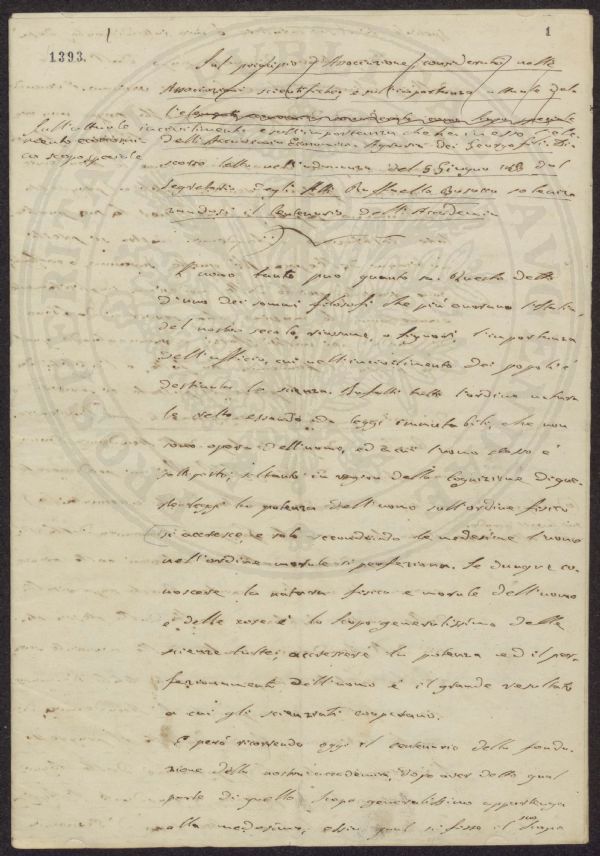 1
1393.
Sul principio d'Associazione considerato nelle
Associazioni scientifiche, e sull'importanza attuale della
Sull'attuale incivilimento e sull'importanza che ha in esso l'ele-
mento economi-
co scopo speciale
dell'Accademia Economico Agraria dei Georgofili. Di-
scorso letto nell'adunanza del 5 Giugno 1853 dal
Segretario degli Atti Raffaello Busacca solenniz-
zandosi il Centenario dell'Accademia
L'uomo tanto può quanto sa. Questo detto
d'uno dei sommi filosofi che più onorano l'Italia
del nostro secolo, riassume, o Signori, l'importanza
dell'ufficio, cui nell'incivilimento dei popoli è
destinata la scienza. Infatti tutto l'ordine natura
le retto essendo da leggi immutabili, che non
sono opera dell'uomo, ed a cui l'uomo stesso è
sottoposto, soltanto in ragion della cognizione di que-
ste leggi la potenza dell'uomo sull'ordine fisico
si accresce, e solo secondando le medesime l'uomo
nell'ordine morale si perfeziona. Se dunque co-
noscere la natura fisica e morale dell'uomo
e delle cose è lo scopo generalissimo delle
scienze tutte; accrescere la potenza ed il per-
fezionamento dell'uomo è il grande resultato
a cui gli scienziati cooperano.
E però ricorrendo oggi il centenario della fonda-
zione della nostra accademia, dopo aver detto qual
parte di quello scopo generalissimo appartenga
alla medesima, essia qual si fosse il suo scopo